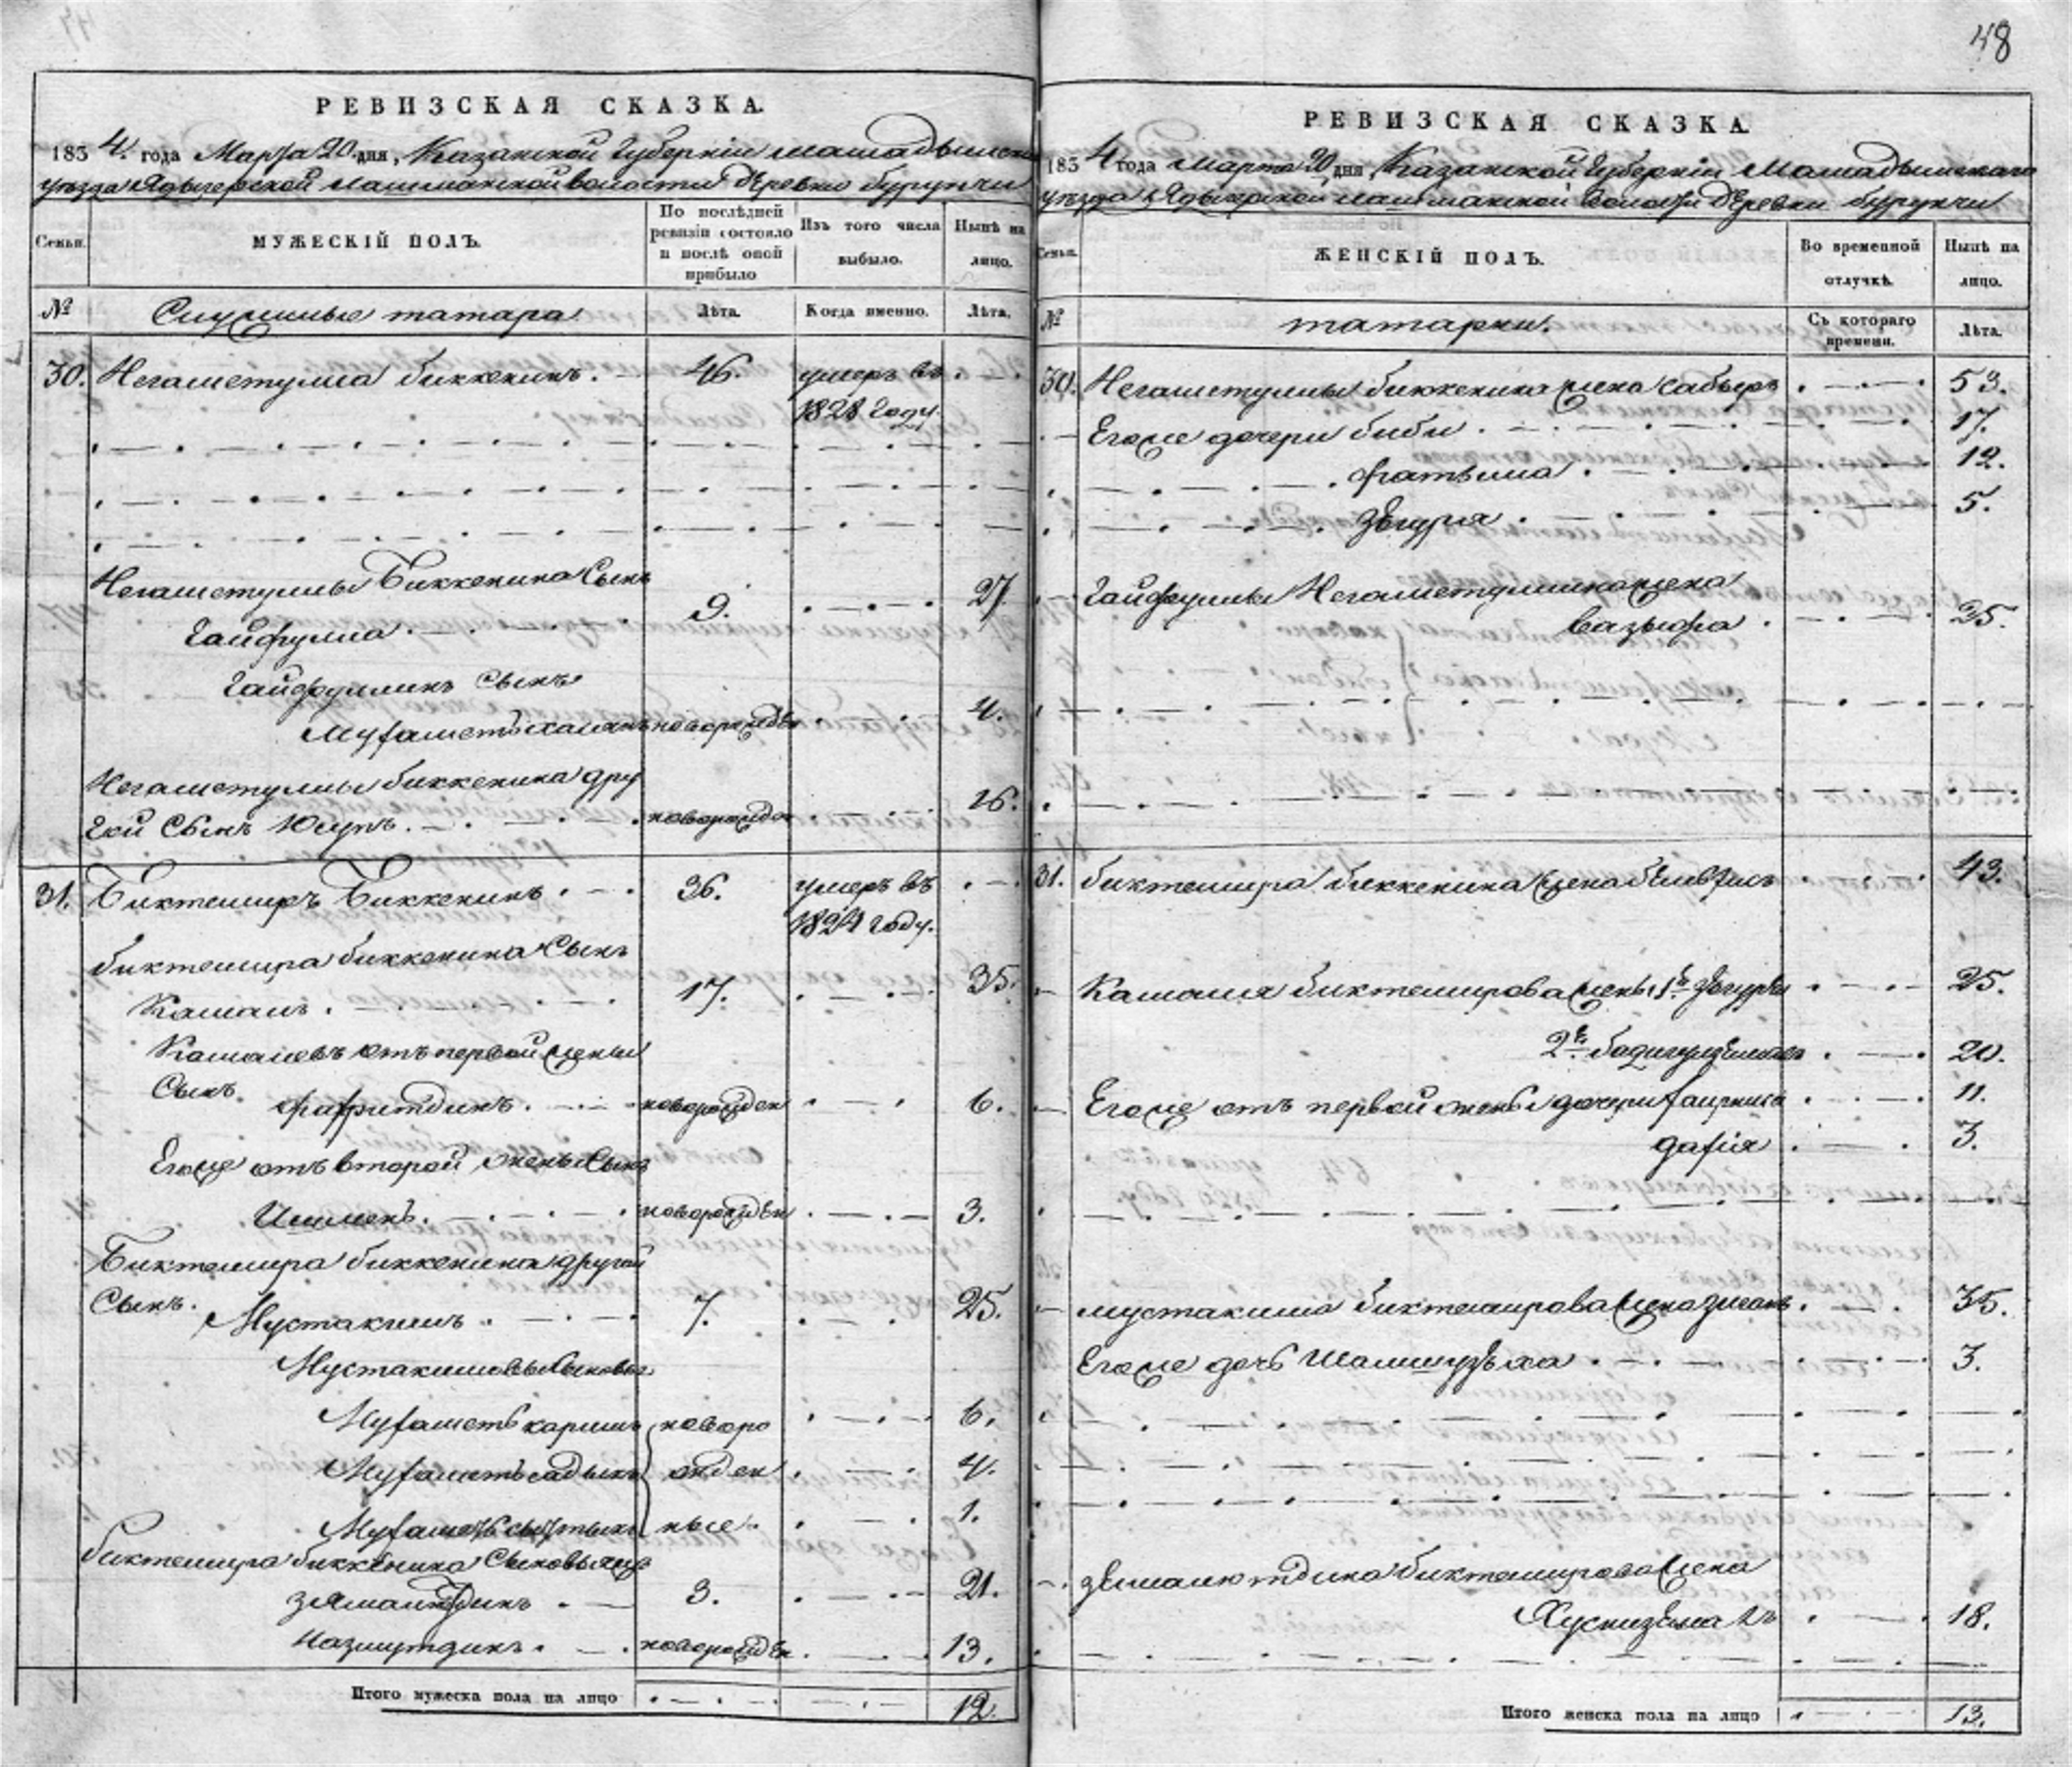 48
РЕВИЗСКАЯ СКАЗКА.
1834. года Марта 20. дня, Казанской Губернiи мамадышска
уѣзда Ядыгерской лашманской волости деревни бурунчи
Семьи.
МУЖЕСКIЙ ПОЛЪ.
По послѣдней ревизiи состояло и послѣ оной прибыло
Изъ того числа выбыло.
Нынѣ на лицо.
№ Служилые татара Лѣта. Когда именно. Лѣта.
30. Негаметулла биккенинъ. 46. умеръ въ
1828. Году.
Негаметуллы Биккенина Сынъ
Гайфулла. 9. 27.
Гайфуллинъ Сынъ
новорожден 4.
Негаметуллы биккенина дру
гой Сынъ Юсупъ. новорожден 16.
31. Биктемиръ Биккенинъ. 36. умеръ въ
1824 Году.
биктемира биккенина Сынъ
Камалъ. 17. 35.
Камалевъ отъ первой жены
Сынъ. фахритдинъ. новорожден 6.
Егоже отъ второй жены Сынъ
Ишменъ. новорожден 3.
Биктемира биккенина другой
Сынъ. Мустакимъ. 7. 25.
Мустакимовы Сыновья
Мухаметь каримъ новоро 6.
Мухаметь садыкъ жден 4.
ные. 1.
биктемира биккенина Сыновья
3. 21.
Назмутдинъ. новорожден 13.
Итого мужеска пола на лицо 12.
РЕВИЗСКАЯ СКАЗКА.
1834 года Марта 20 дня Казанской Губернiи Мамадышскаго
уѣзда Ядыгерской лашманской Волости Деревни бурунчи
Семьи.
ЖЕНСКIЙ ПОЛЪ.
Во временной отлучкѣ.
Нынѣ на лицо.
№ татарки. Съ котораго времени. Лѣта.
30. Негаметуллы биккенина жена Сабыра 53.
Егоже дочери биби. 17.
фатыма. 12.
Зѣгуря. 5.
Гайфуллы Негаметуллина жена
Вазыфа. 25.
31. биктемира биккенина жена 43.
Камаля биктемирова жены 1я 25.
2я 20.
Егоже отъ первой жены дочери 11.
3.
мустакима биктемирова жена 35.
Егоже дочь 3.
биктемирова жена
18.
Итого женска пола на лицо 13.